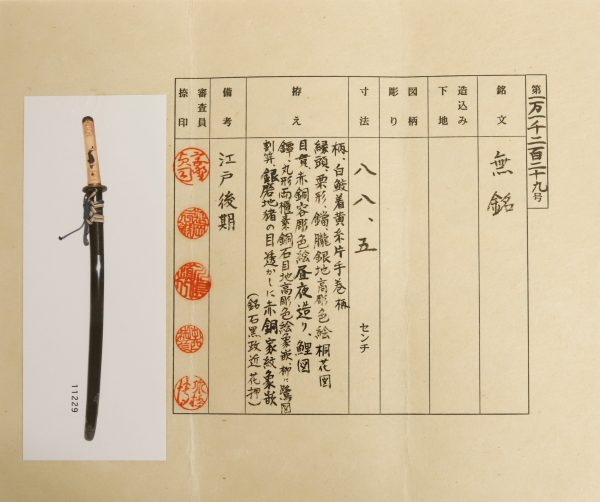 第一万一千二百二十九号
銘文
無銘
造込み
下地
図柄
彫り
寸法
八八、五
センチ
拵え
柄、白鮫着黄糸片手巻柄
縁頭、栗形、鐺、朧銀地高彫色絵桐花図
目貫、赤銅容彫色絵昼夜造り、鯉図
鐔、丸形両櫃素銅石目地高彫色絵象嵌、柳に鷺図
割笄、銀磨地猪の目透かしに赤銅家紋象嵌
(銘石黒政近花押)
備考
江戸後期
審査員
捺印
11229